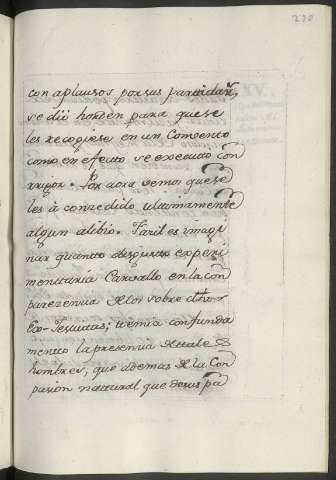 230
con aplausos por sus
se dió horden para que se
les recogiese en un Convento
como en efecto se executó con
rrigor. Por aora vemos que se
les à concedido ultimamente
algun alibio. Facil es imagi
nar quanto desgusto experi
mentaria Carvallo en la con
parezenzia de los sobre dhos
Ex-Jesuitas; temia con funda
mento la presenzia de tales
hombres, que ademas de la con
pasion natural que de sus pa